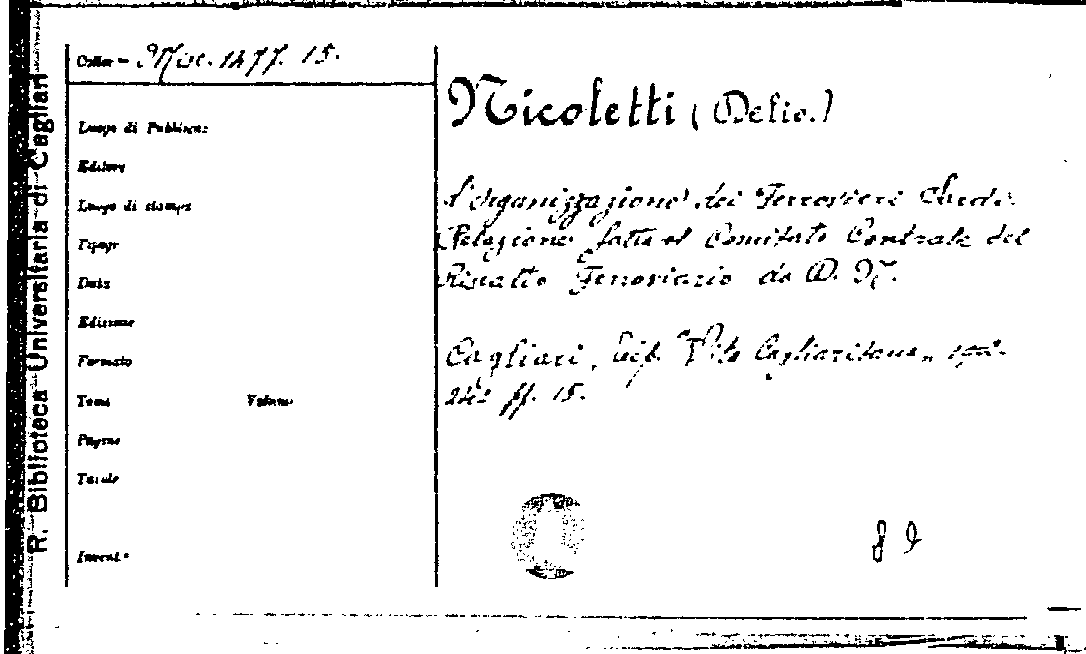 R. Biblioteca Universitaria di Cagliari
Colloc - Misc. 1277. 15.
Luogo di Pubblicaz
Editore
Luogo di stampa
Tipogr
Data
Edizione
Formato
Tomi Volumi
Pagine
Tavole
Invent.°
Nicoletti (Delio.)
L'organizzazione dei Ferrovieri Sardi.
Relazione fatta al Comitato Centrale del
Riscatto Ferroviario da D. N.
Cagliari, Tip. "Vita Cagliaritana"
pp. 15.